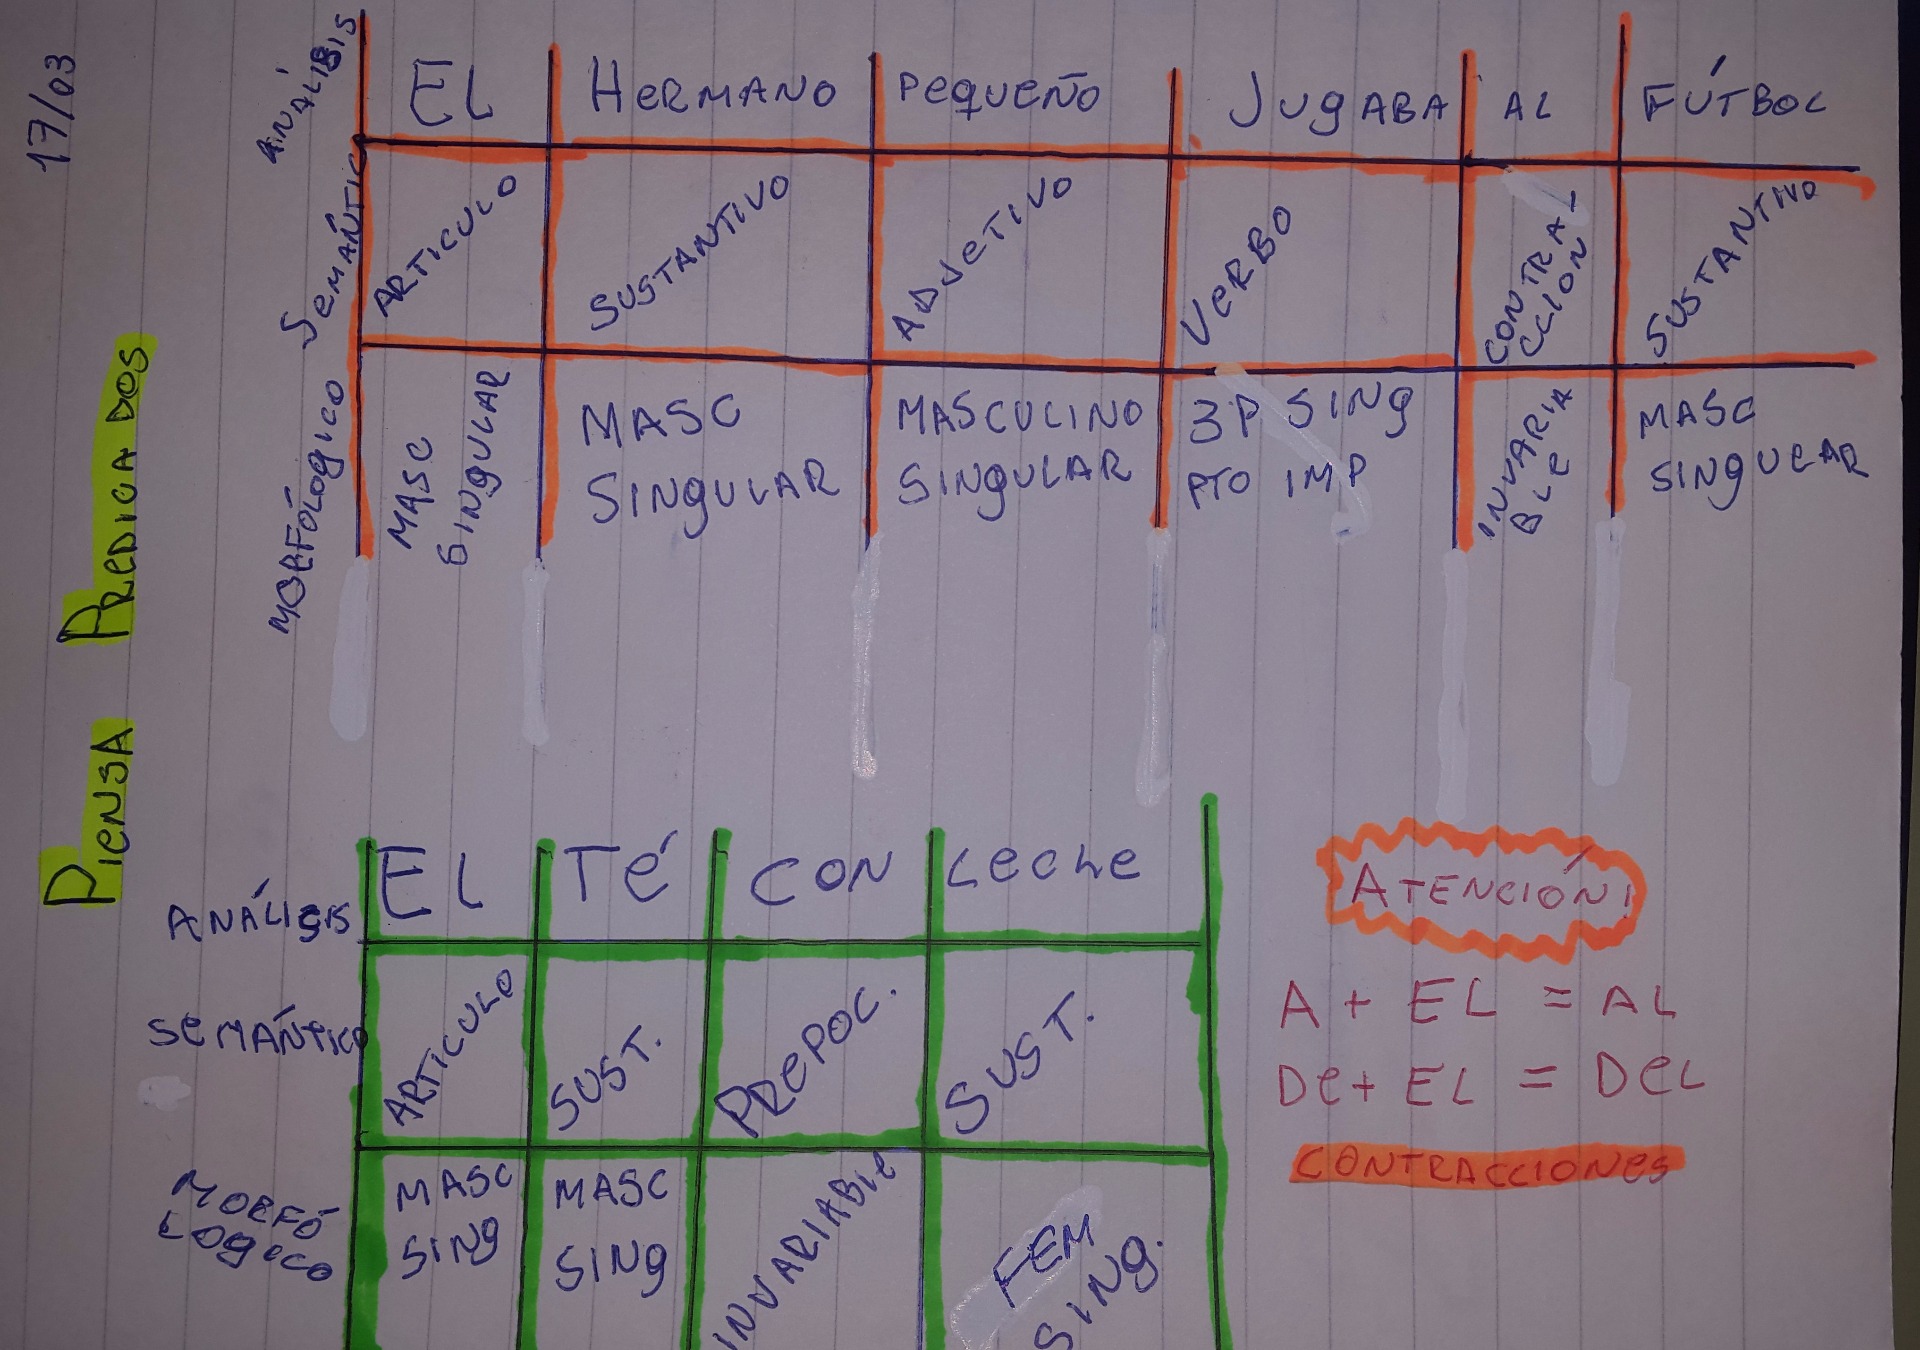 17/03
PIENSA PREDICADOS
ANÁLISIS EL HERMANO PEQUEÑO JUGABA AL FÚTBOL
SEMÁNTICO ARTICULO SUSTANTIVO ADJETIVO VERBO CONTRA-
CCION SUSTANTIVO
MORFÓLOGICO MASC
SINGULAR MASC
SINGULAR MASCULINO
SINGULAR 3P SING
PTO IMP INVARIA
BLE MASC
SINGULAR
ANÁLISIS EL TÉ CON LECHE
SEMÁNTICO ARTICULO SUST. PREPOC. SUST.
MORFÓ-
LOGICO MASC
SING MASC
SING INVARIABLE FEM
SING.
ATENCIÓN!
A + EL = AL
DE + EL = DEL
CONTRACCIONES